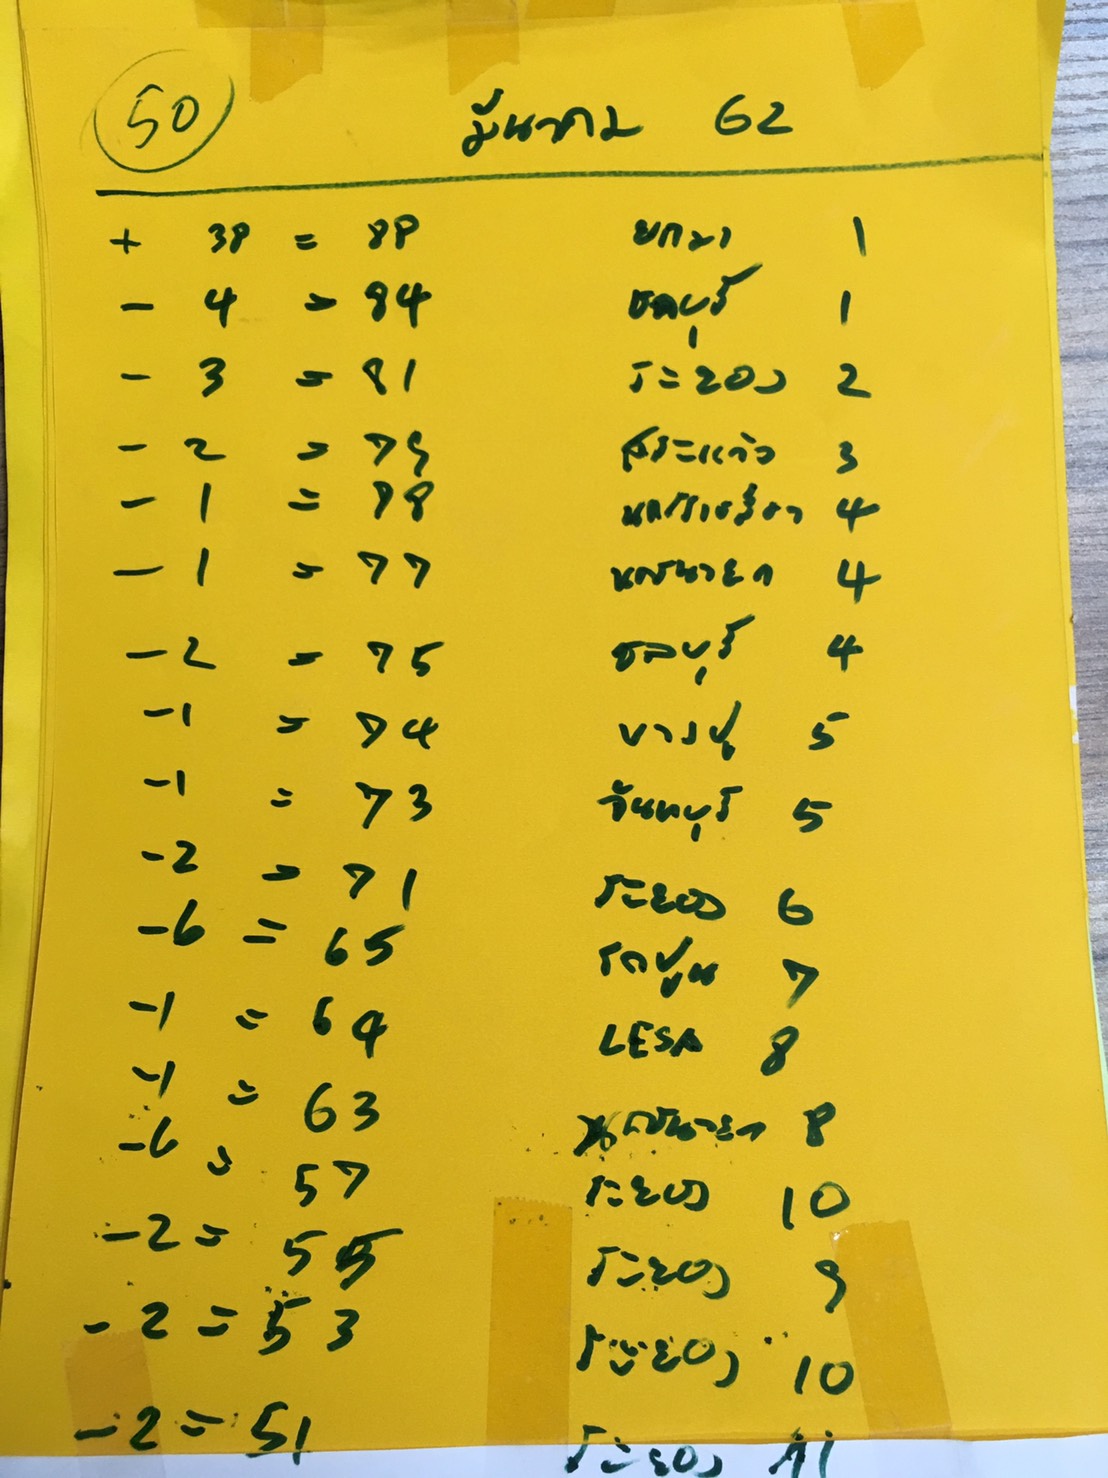 50 มีนาคม 62
+ 38 = 88 ยกมา 1
- 4 = 84 ชลบุรี 1
- 3 = 81 ระยอง 2
- 2 = 79 สระแก้ว 3
- 1 = 78 4
- 1 = 77 นครนายก 4
- 2 = 75 ชลบุรี 4
- 1 = 74 บางปู 5
- 1 = 73 จันทบุรี 5
- 2 = 71 ระยอง 6
- 6 = 65 7
- 1 = 64 LESA 8
- 1 = 63 นครนายก 8
- 6 = 57 ระยอง 10
- 2 = 55 ระยอง 9
- 2 = 53 ระยอง 10
- 2 = 51 ระยอง 11